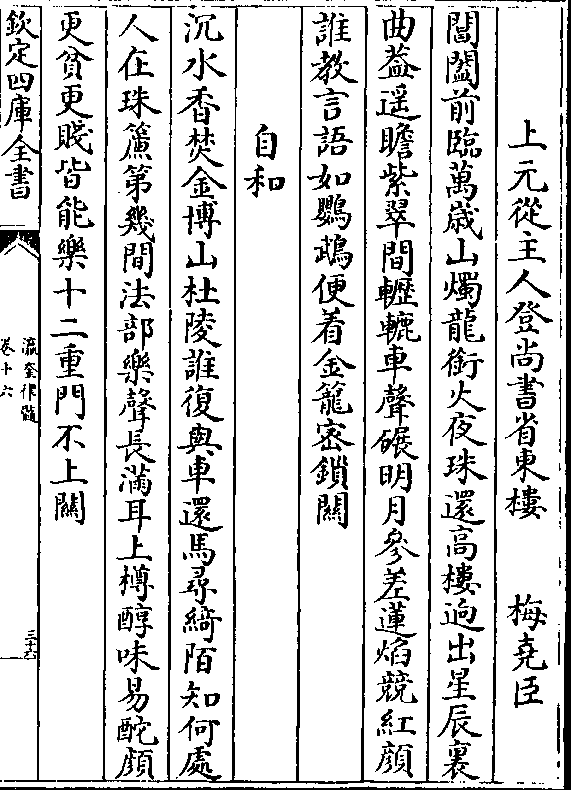 上元從主人登尚書省東樓　梅堯臣
閶闔前臨萬歳山燭龍銜火夜珠還高樓逈出星辰裏
曲葢遥瞻紫翠間轣轆車聲碾明月參差蓮焰競紅顔
誰教言語如鸚鵡便着金籠密鎖關
自和
沉水香焚金博山杜陵誰復與車還馬尋綺陌知何處
人在珠簾第幾間法部樂聲長滿耳上樽醇味易酡顔
更貧更賤皆能樂十二重門不上關
欽定四庫全書
瀛奎律髓
卷十六
三十六